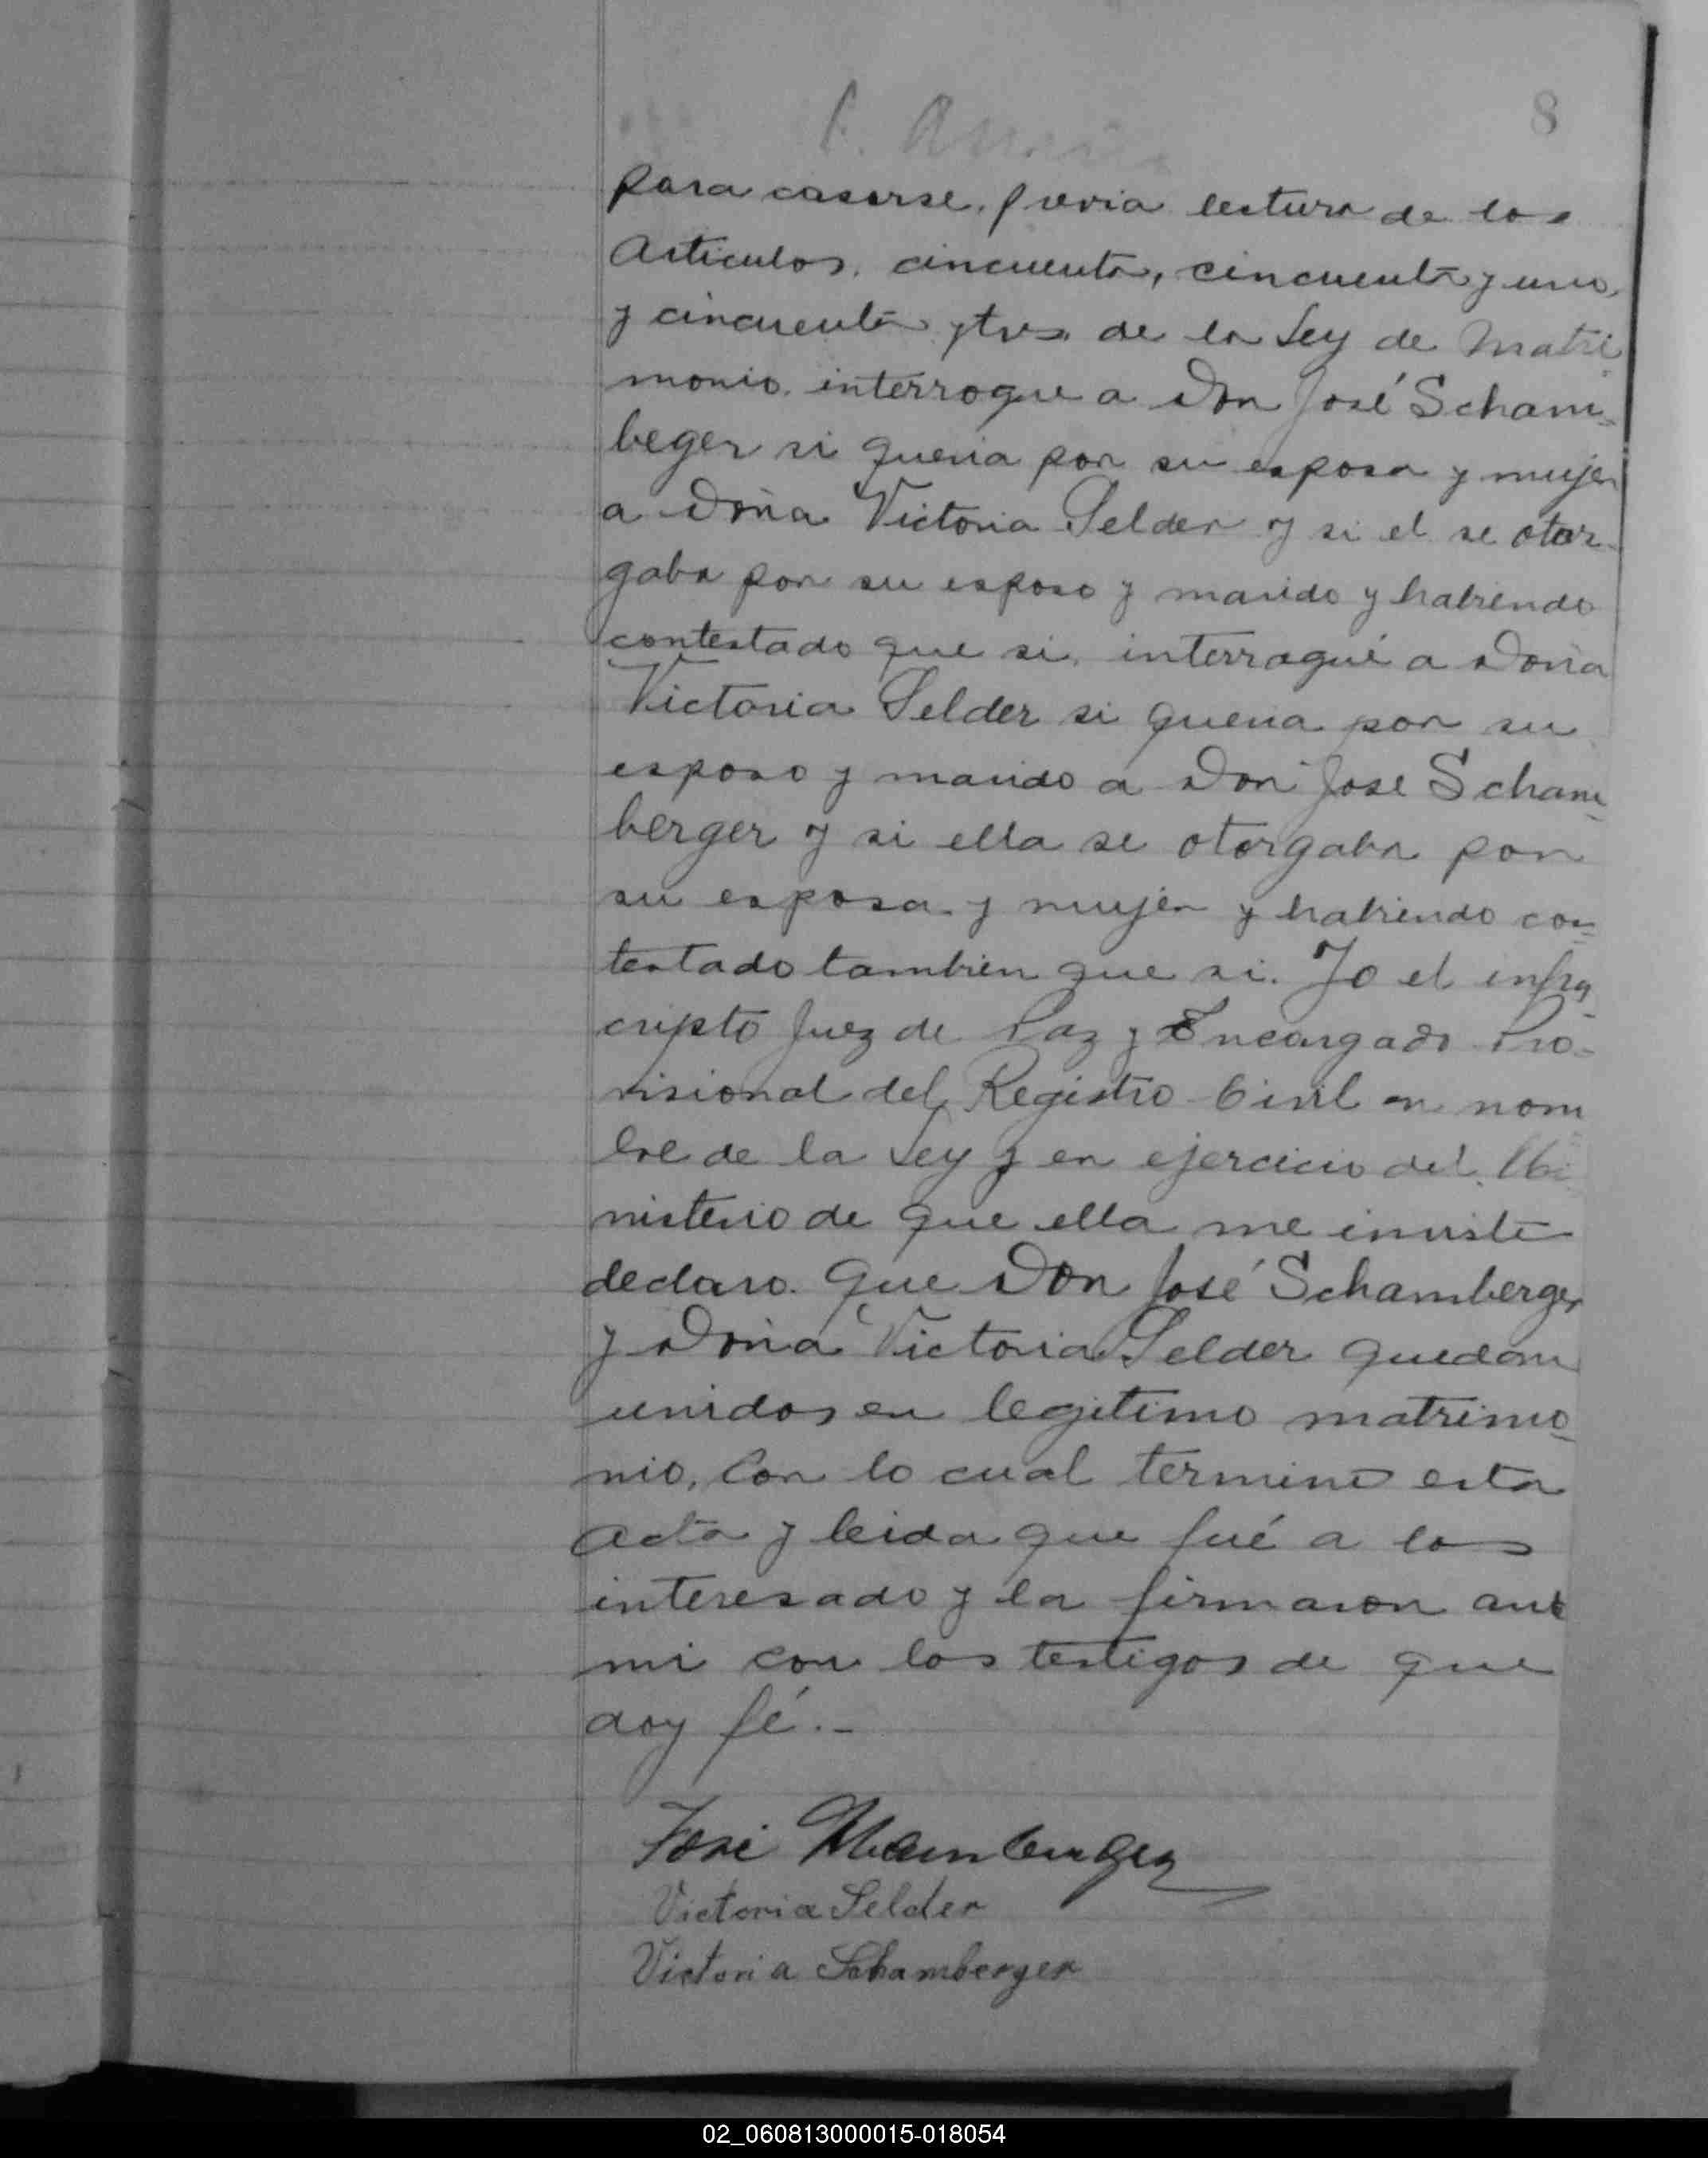 8
para casarse, previa lectura de los
Articulos, cincuenta, cincuenta y uno,
y cincuenta y tres de la Ley de Matri
monio, interrogue a Don José Scham=
beger si queria por su esposa y mujer
a Doña Victoria Selder y si el se otor-
gaba por su esposo y marido y habiendo
contestado que si, interrogué a Doña
Victoria Selder si queria por su
esposo y marido a Don Jose Scham-
berger y si ella se otorgaba por
su esposa y mujer y habiendo con=
testado tambien que si. Yo el infra
cripto Juez de Paz y Encargado Pro-
visional del Registro Civil en nom
bre de la Ley y en ejercicio del Mi
nisterio de que ella me inviste
declaro. Que Don José Schamberger
y Doña Victoria Selder quedan
unidos en legitimo matrimo-
nio, Con lo cual termino esta
acta y leida que fué a los
interesado y la firmaron ante
mi con los testigos de que
doy fé.-
José Schamberger
Victoria Selder
Victoria Schamberger
02_060813000015-018054